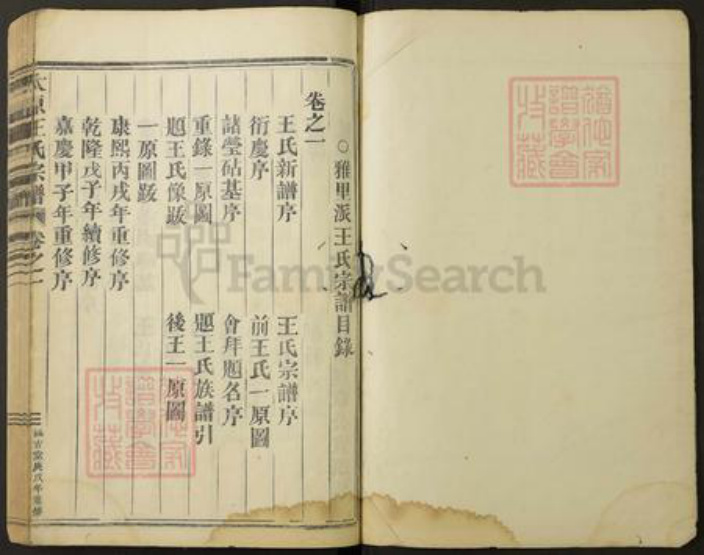 ○雅里派王氏宗譜目錄
卷之一
王氏新譜序
王氏宗譜序
衍慶序
前王氏一原圖
諸塋砧基序
會拜題名序
重錄一原圖
題王氏族譜引
題王氏像跋
後王一原圖
一原圖跋
康熙丙戌年重修序
乾隆戊子年續修序
嘉慶甲子年重修序
太原王氏宗譜 卷之一
FamilySearch